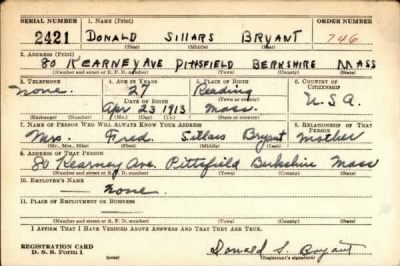 SERIAL NUMBER 1. NAME (Print) ORDER NUMBER
2421 DONALD SILLARS BRYANT 746
(First) (Middle) (Last)
2. ADDRESS (Print)
80 KEARNEY AVE PITTSFIELD BERKSHIRE MASS
(Number and street or R. F. D. number) (Town) (County) (State)
3. TELEPHONE 4. AGE IN YEARS 5. PLACE OF BIRTH 6. COUNTRY OF CITIZENSHIP
none. 27 Reading
DATE OF BIRTH (Town or county)
Apr 23 1913 Mass. U.S.A.
(Exchange) (Number) (Mo.) (Day) (Yr.) (State or country)
7. NAME OF PERSON WHO WILL ALWAYS KNOW YOUR ADDRESS 8. RELATIONSHIP OF THAT PERSON
Mrs. Fred Sillars Bryant mother
(Mr., Mrs., Miss) (First) (Middle) (Last)
9. ADDRESS OF THAT PERSON
80 Kearney Ave. Pittsfield Berkshire Mass
(Number and street or R. F. D. number) (Town) (County) (State)
10. EMPLOYER'S NAME
none.
11. PLACE OF EMPLOYMENT OR BUSINESS
(Number and street or R. F. D. number) (Town) (County) (State)
I AFFIRM THAT I HAVE VERIFIED ABOVE ANSWERS AND THAT THEY ARE TRUE.
REGISTRATION CARD
D. S. S. Form 1
Donald S. Bryant
(Registrant's signature)